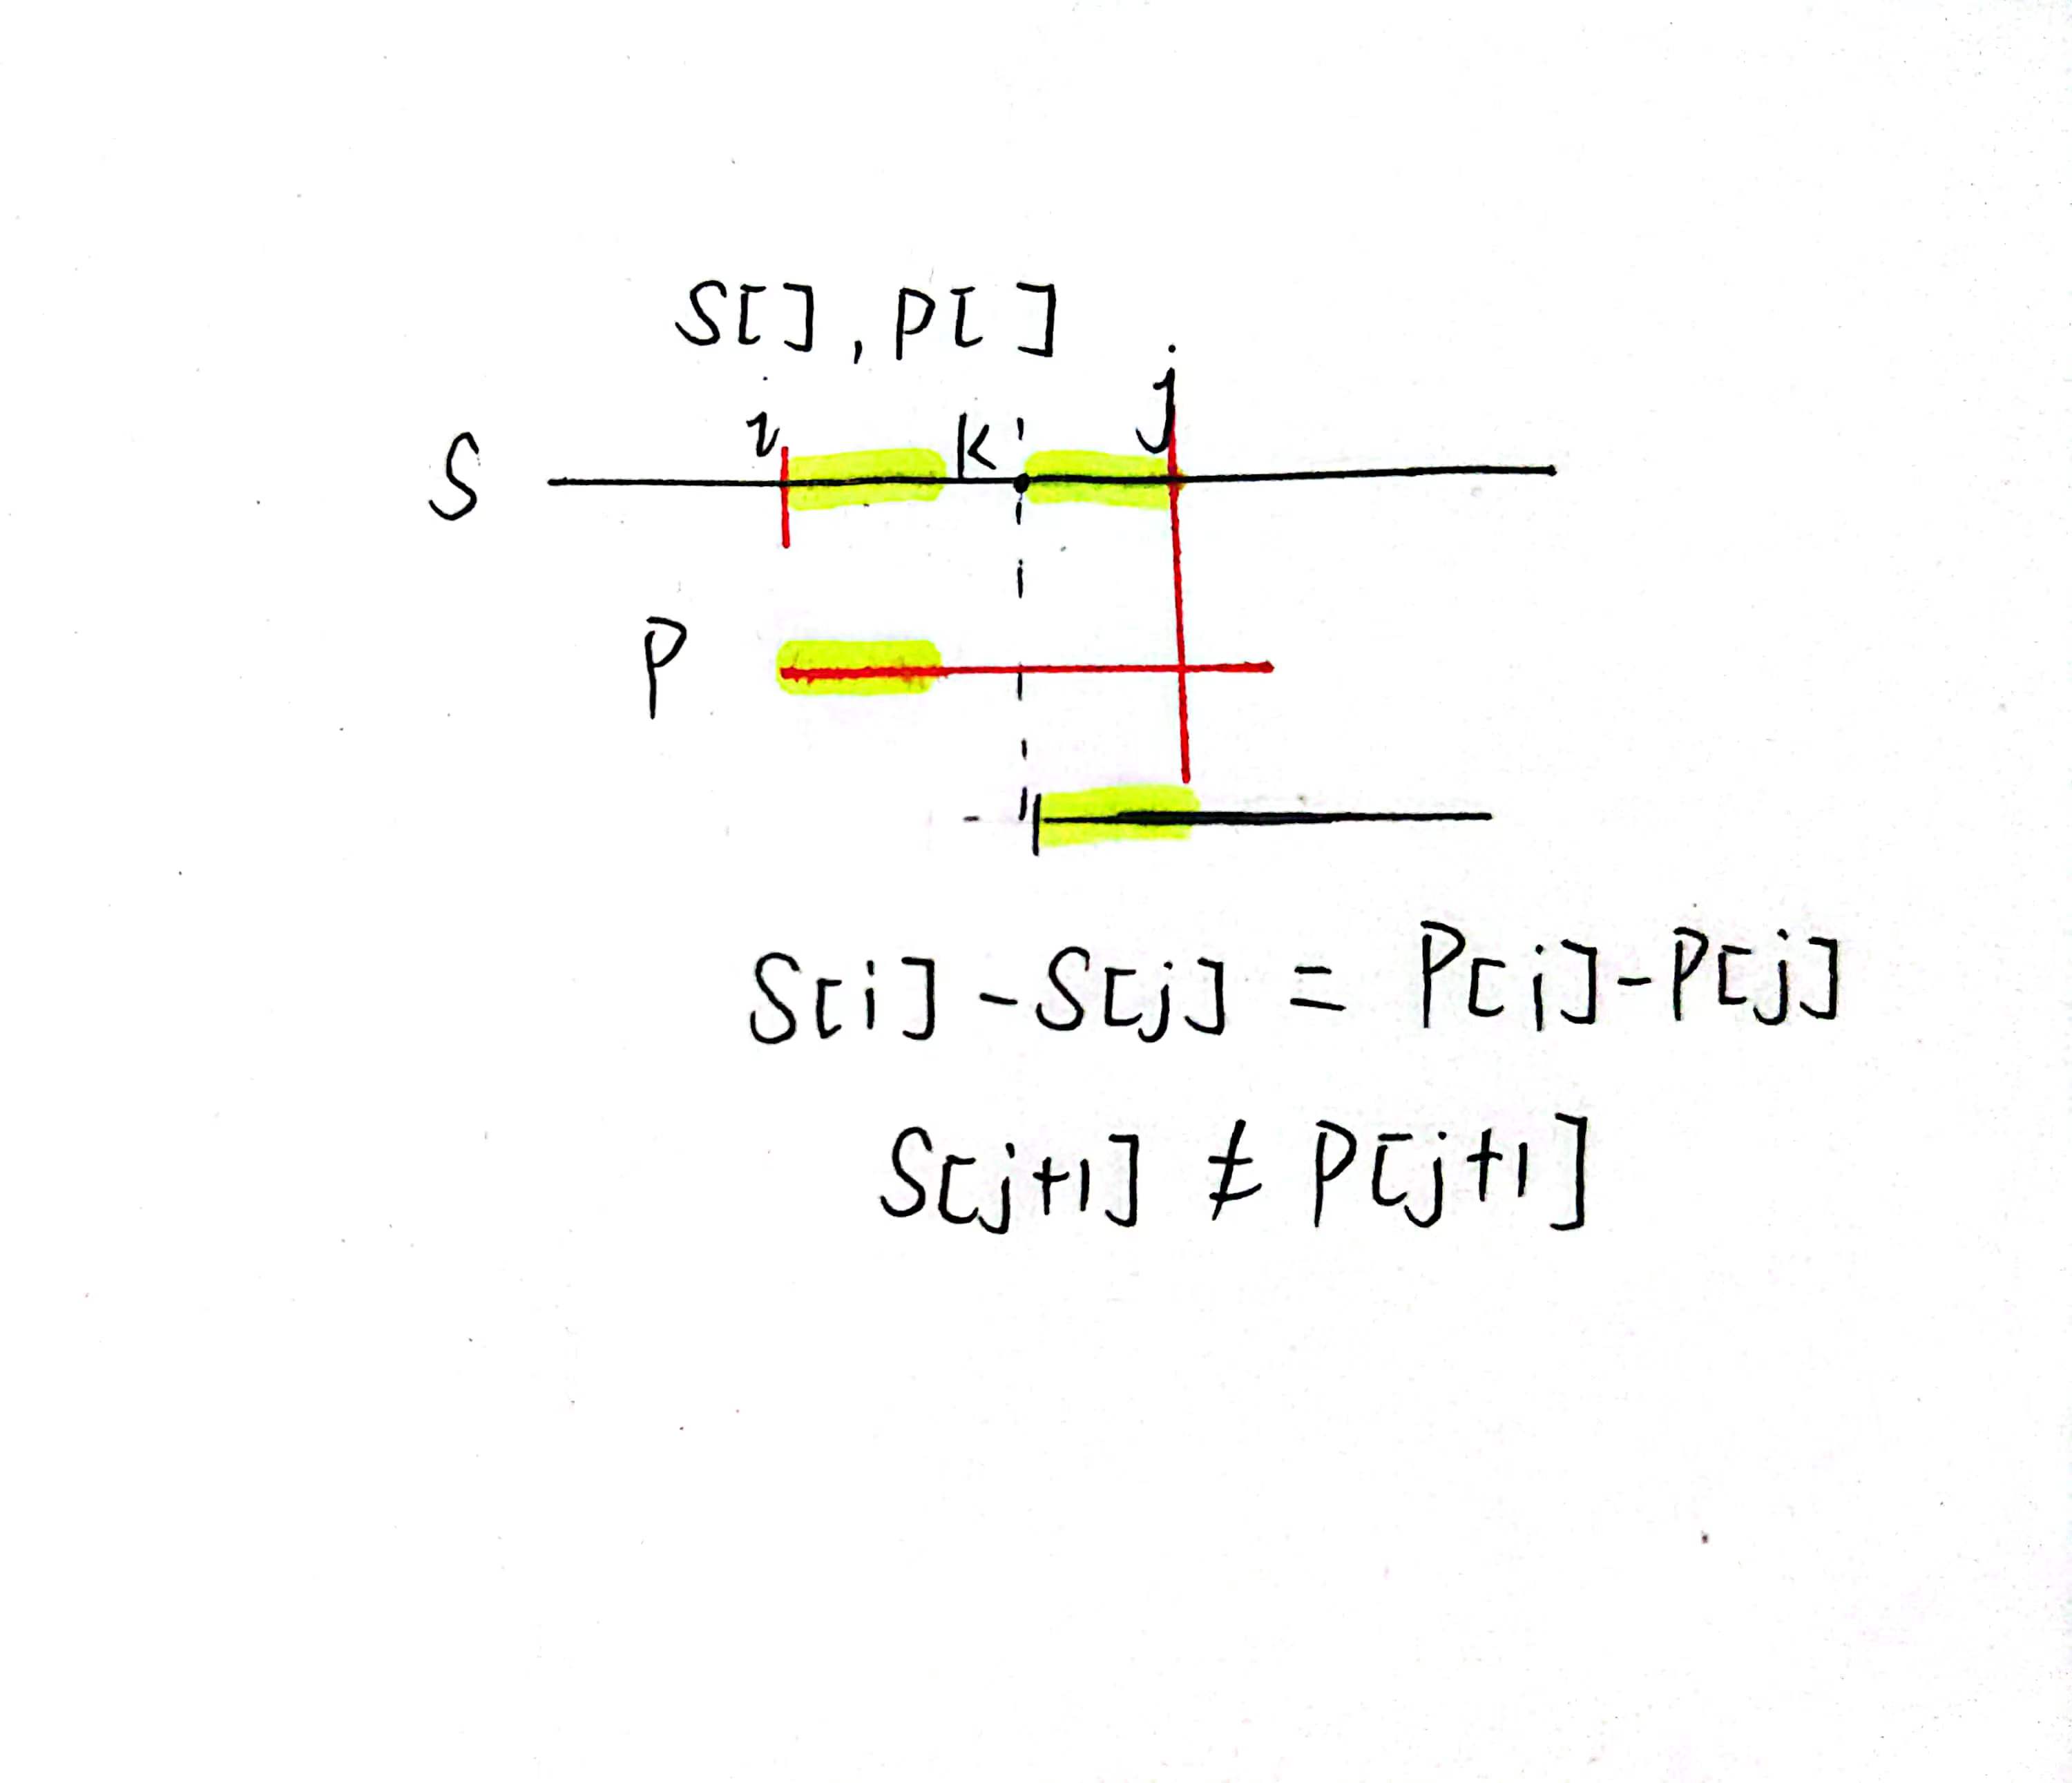 S[], P[ ]
i k j
S
P
S[i] - S[j] = P[i] - P[j]
S[j+1] ≠ P[j+1]